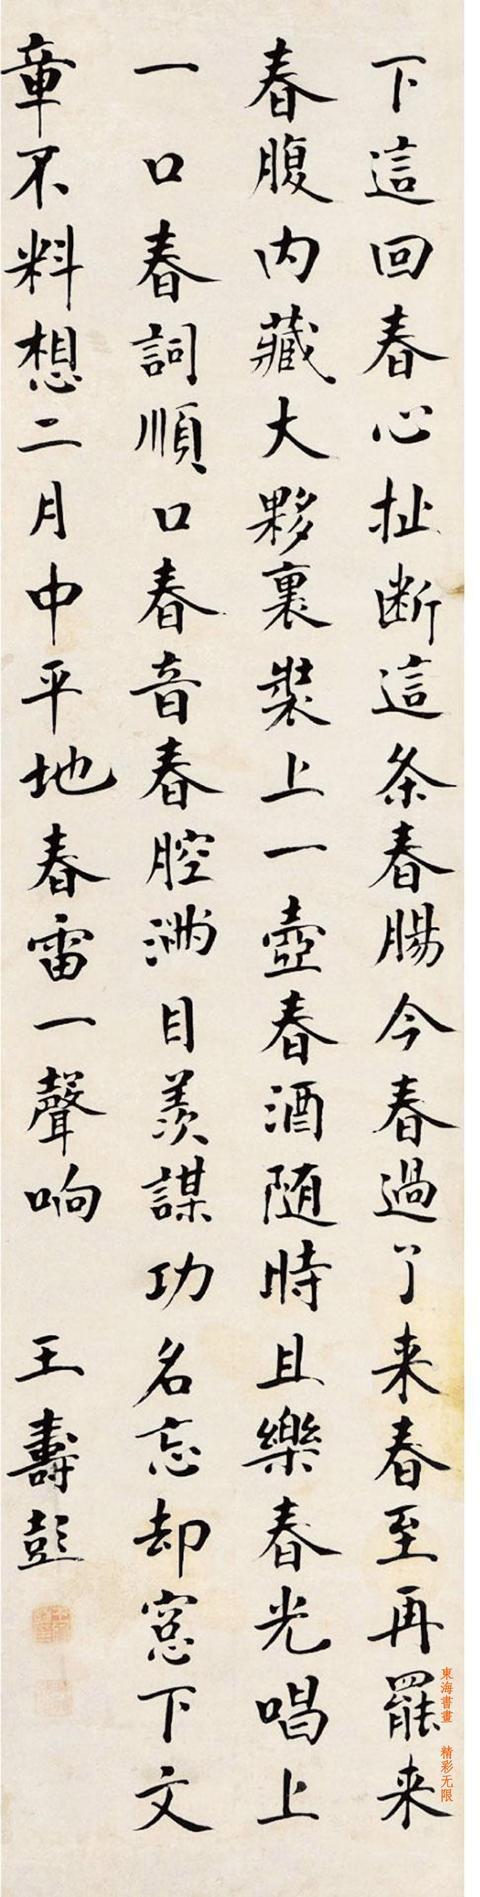 下這回春心扯断這条春腸今春過了来春至再罷来
春腹内藏大夥裏裝上一壺春酒随時且樂春光唱上
一口春詞順口春音春腔满目羡謀功名忘却窓下文
章不料想二月中平地春雷一聲响
王壽彭
東海書畫 精彩无限